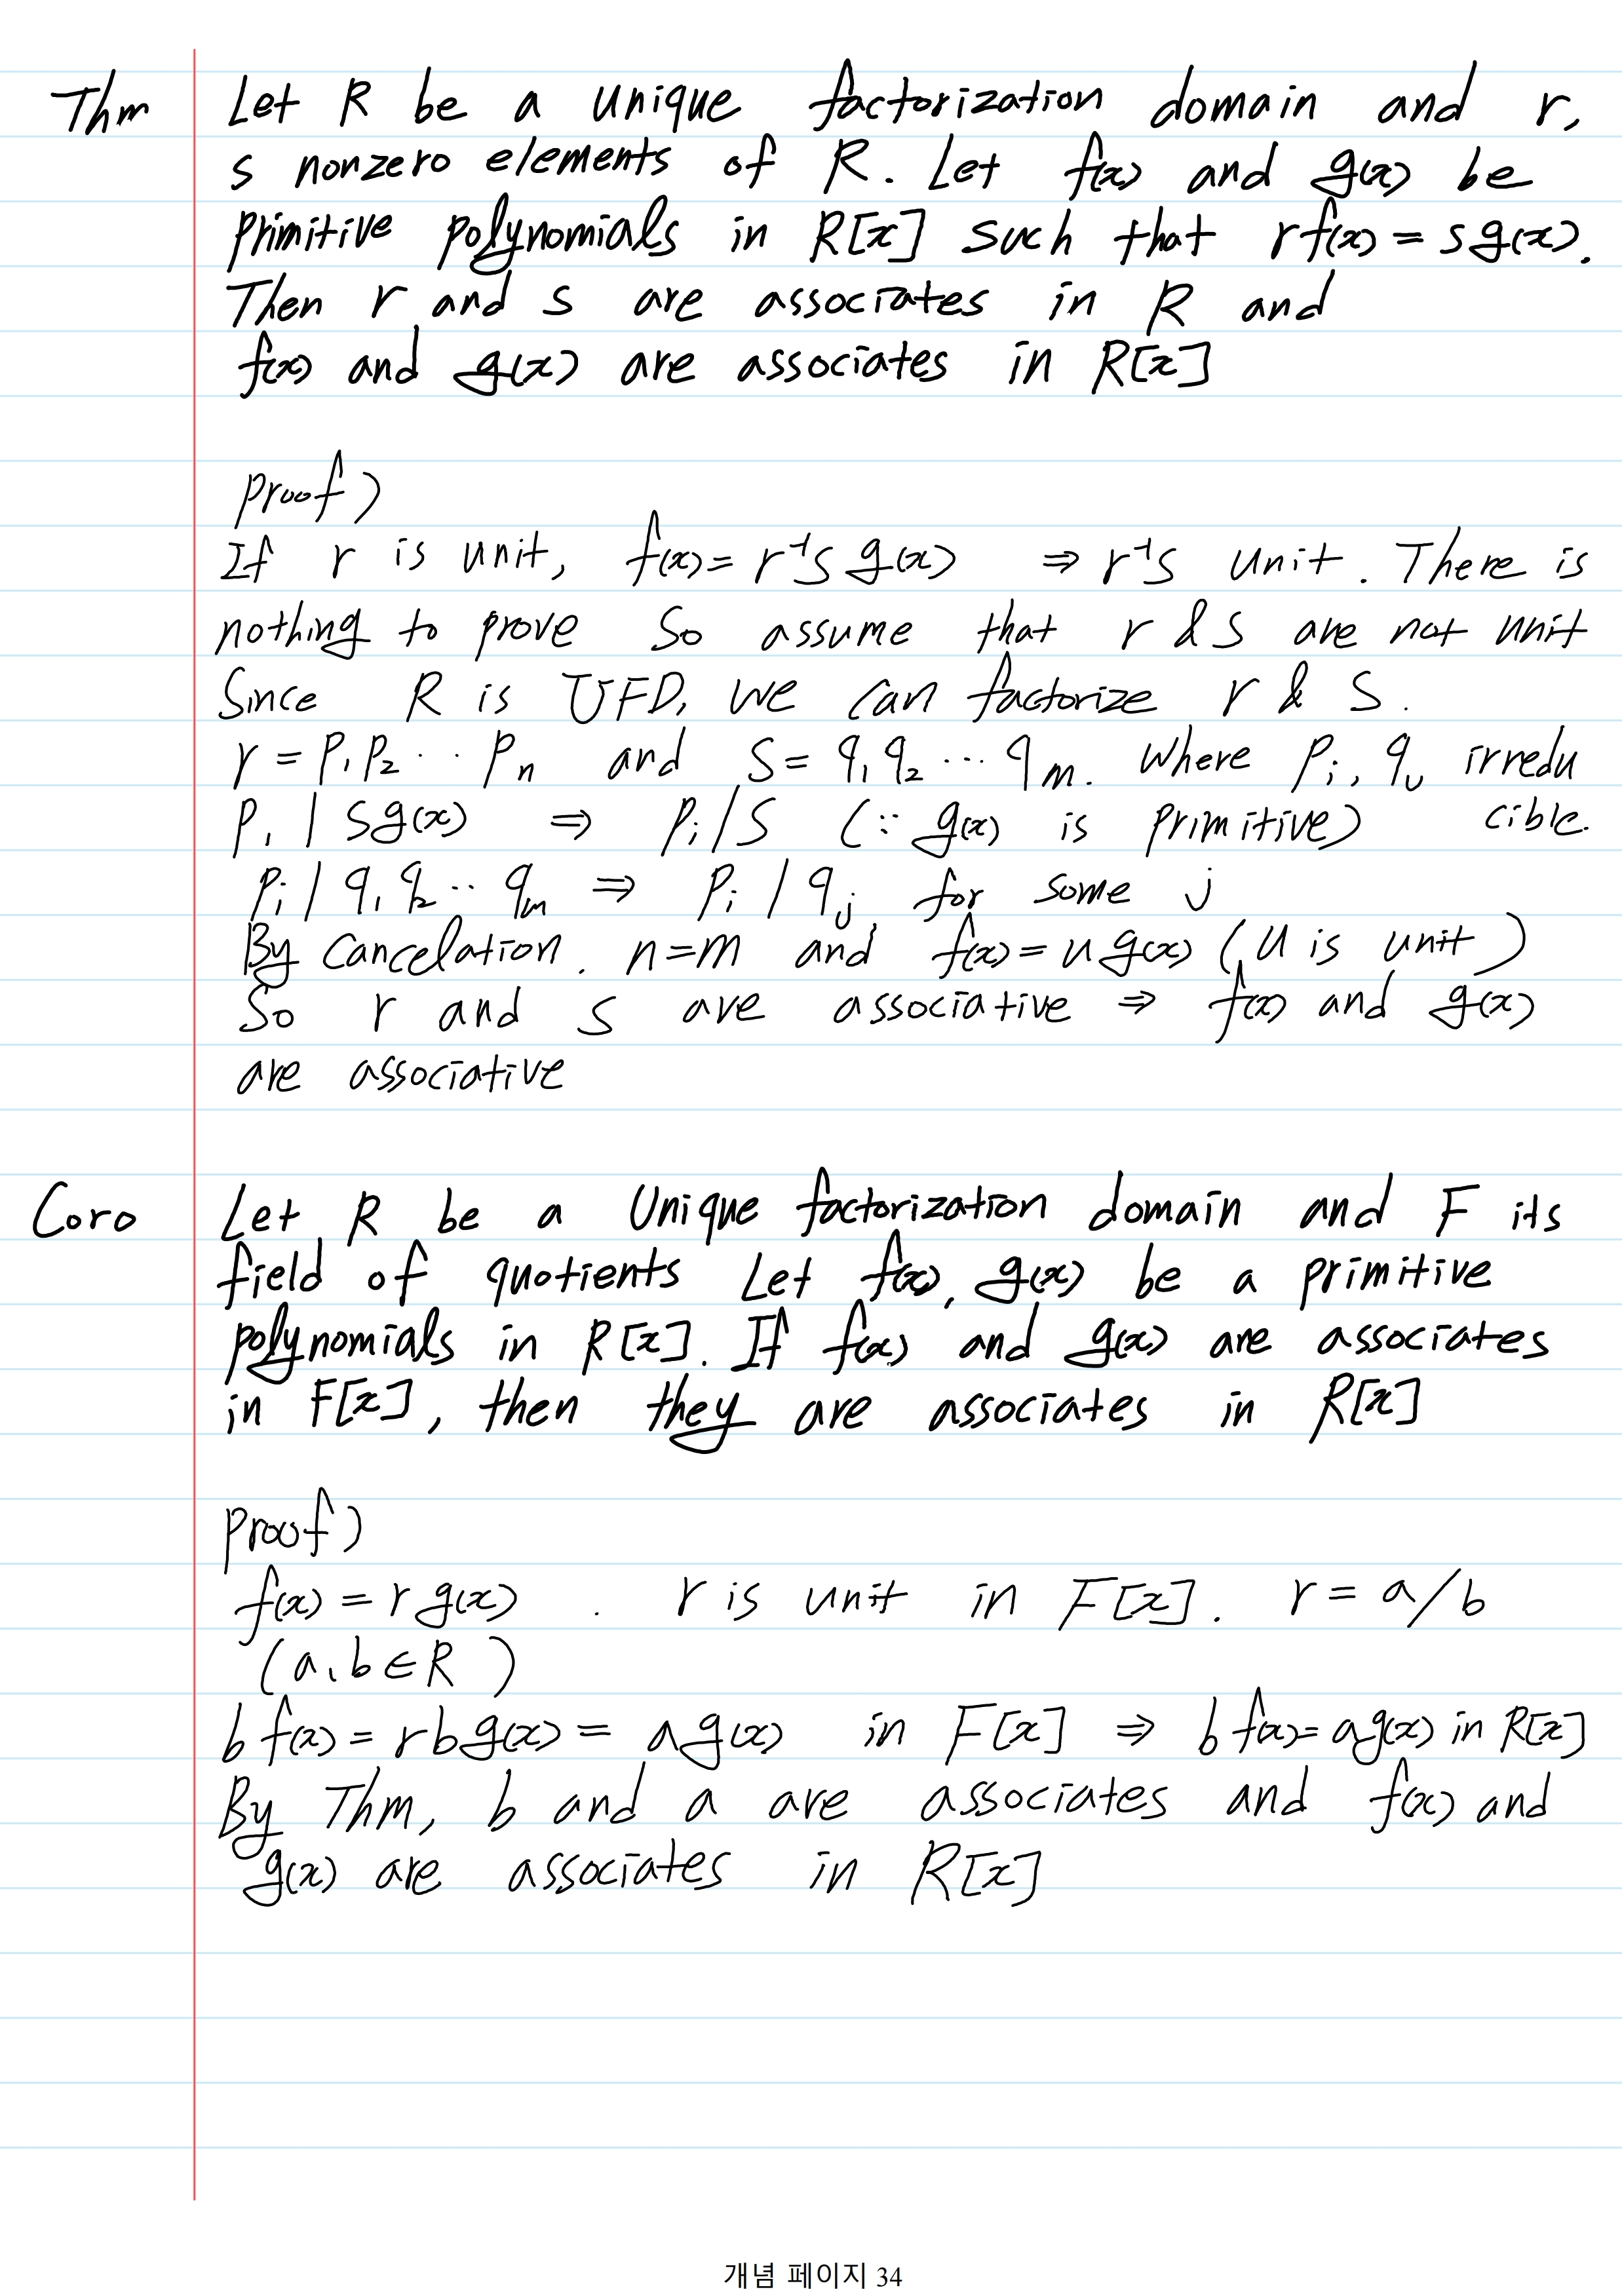 Thm Let R be a unique factorization domain and r,
s nonzero elements of R. Let f(x) and g(x) be
primitive polynomials in R[x] such that rf(x) = sg(x).
Then r and s are associates in R and
f(x) and g(x) are associates in R[x]
proof)
If r is unit, f(x) = r⁻¹s g(x) ⇒ r⁻¹s unit. There is
nothing to prove So assume that r & s are not unit
Since R is UFD, we can factorize r & s.
r = p₁p₂ ⋯ pₙ and s = q₁q₂ ⋯ qₘ. where pᵢ, qᵢ, irredu
p₁ | sg(x) ⇒ pᵢ | s (∵ g(x) is primitive) cible.
pᵢ | q₁q₂ ⋯ qₘ ⇒ pᵢ | qⱼ for some j
By cancelation. n=m and f(x) = u g(x) (u is unit)
So r and s are associative ⇒ f(x) and g(x)
are associative
Coro Let R be a Unique factorization domain and F its
field of quotients Let f(x), g(x) be a primitive
polynomials in R[x]. If f(x) and g(x) are associates
in F[x], then they are associates in R[x]
proof)
f(x) = r g(x) . r is unit in F[x]. r = a/b
(a, b ∈ R)
b f(x) = rb g(x) = a g(x) in F[x] ⇒ b f(x) = a g(x) in R[x]
By Thm, b and a are associates and f(x) and
g(x) are associates in R[x]
개념 페이지 34